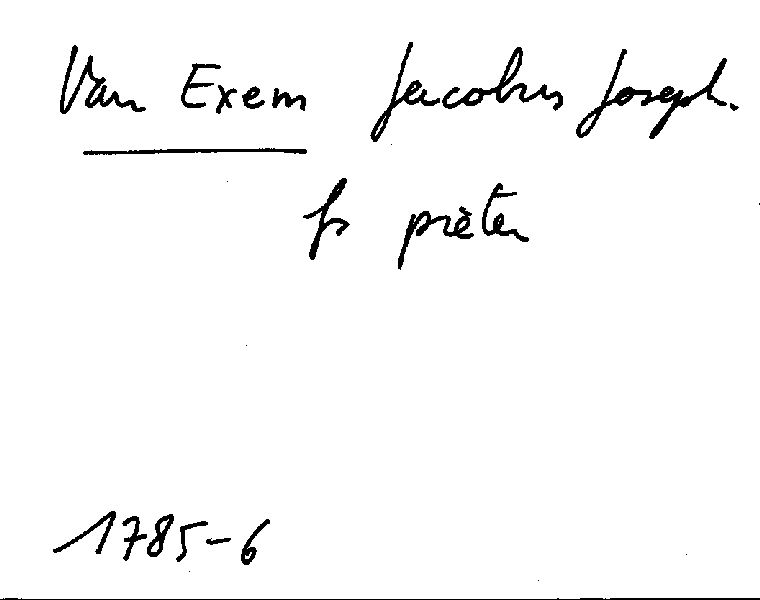 Van Exem Jacobus Joseph.
fs pièter
1785-6